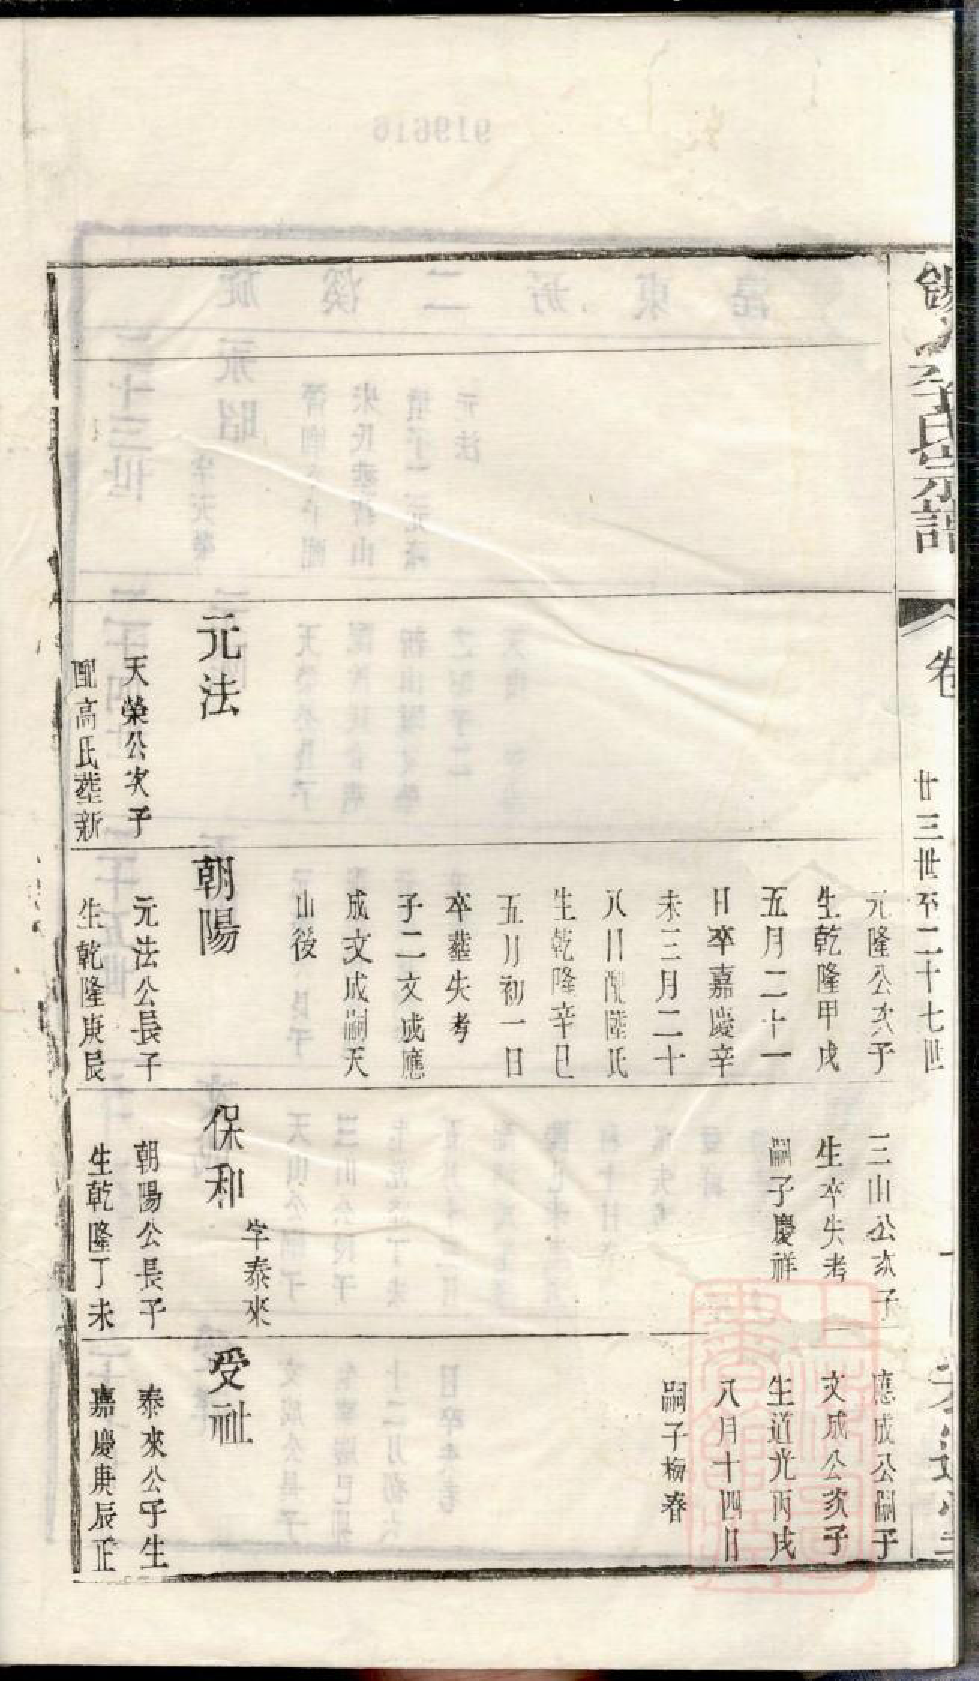 錫山李氏宗譜
卷
廿三世至二十七世
元法
天榮公次子
配高氏塟新
元隆公次子
生乾隆甲戌
五月二十一
日卒嘉慶辛
未三月二十
八日配陸氏
生乾隆辛巳
五月初一日
卒塟失考
子二文成應
成文成嗣天
山後
朝陽
元法公長子
生乾隆庚辰
三山公次子
生卒失考
嗣子慶祥
保和
字泰來
朝陽公長子
生乾隆丁未
應成公嗣子
文成公次子
生道光丙戌
八月十四日
嗣子梅春
受祉
泰來公子生
嘉慶庚辰正